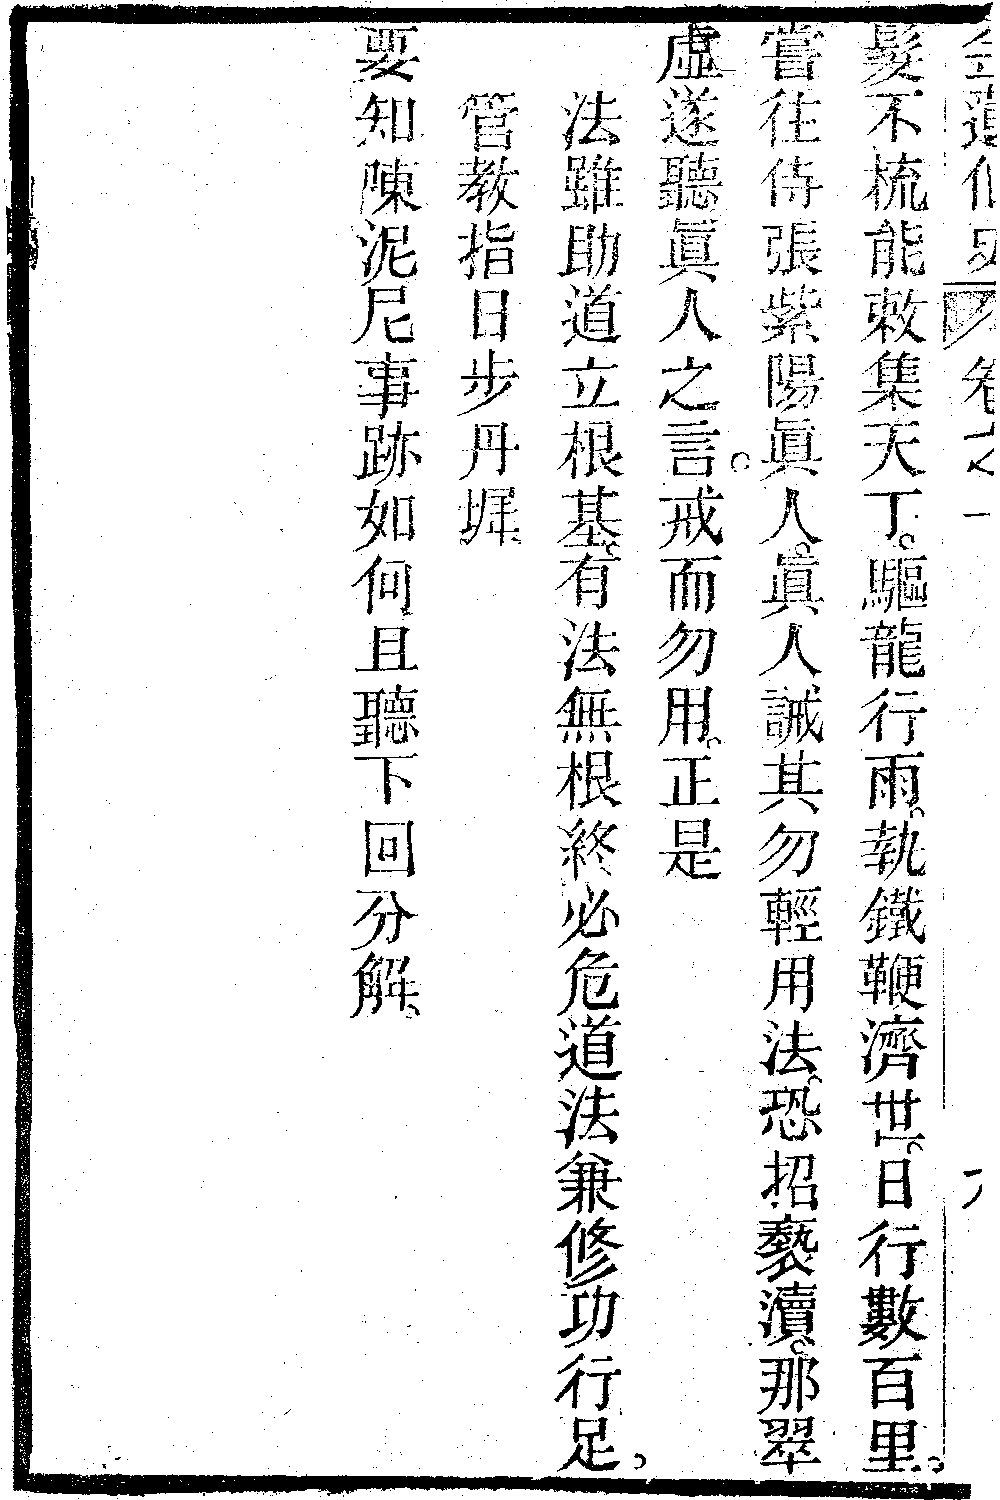 卷之一
髮不梳能敕集天丁。驅龍行雨。執鐵鞭濟世。日行數百里。
嘗往侍張紫陽眞人。眞人誡其勿輕用法。恐招褻瀆。那翠
虛遂聽眞人之言。戒而勿用。正是
法雖助道立根基。有法無根終必危道法兼修功行足。
管教指日步丹墀
要知陳泥尼事跡如何且聽下回分解。